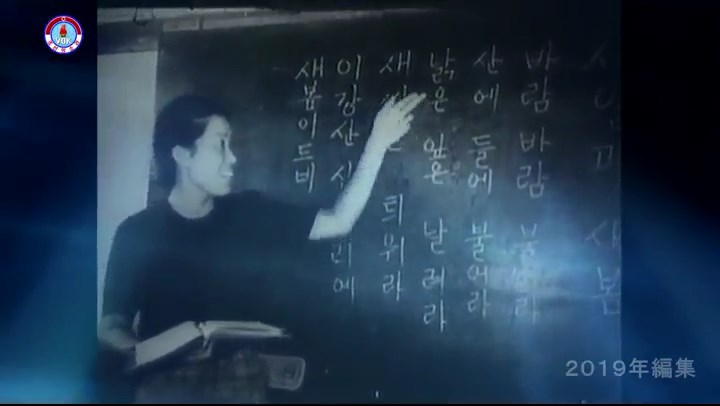 새봄
바람 바람 불어라
산에 들에 불어라
낡은 잎은 날려라
새 틔워라
이강산 리에
새봄이 드비
VOK
2019年編集